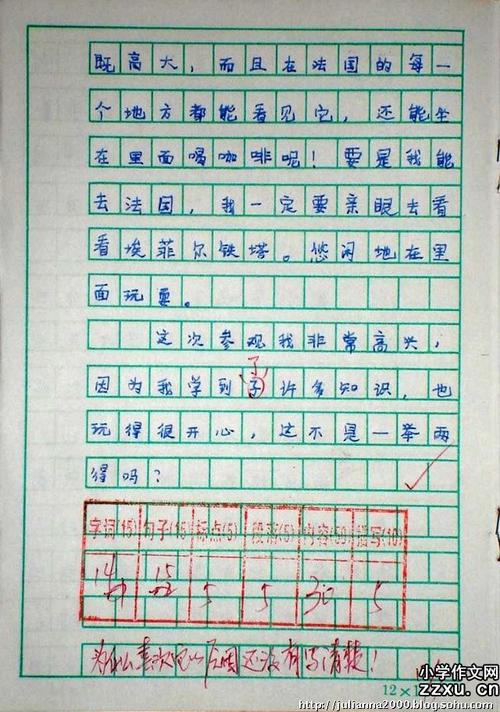 既高大，而且在法国的每一
个地方都能看见它，还能坐
在里面喝咖啡呢！要是我能
去法国，我一定要亲眼去看
看埃菲尔铁塔。悠闲地在里
面玩耍。
这次参观我非常高兴，
了
因为我学到了许多知识，也
玩得很开心，这不是一举两
得吗？
字词(15) 句子(15) 标点(5) 段落(5) 内容(50) 描写(10)
5 5 30 5
为什么喜欢它的原因还没有写清楚！
小学作文网
zzxu.cn
12×1
http://julianna2000.blog.sohu.com